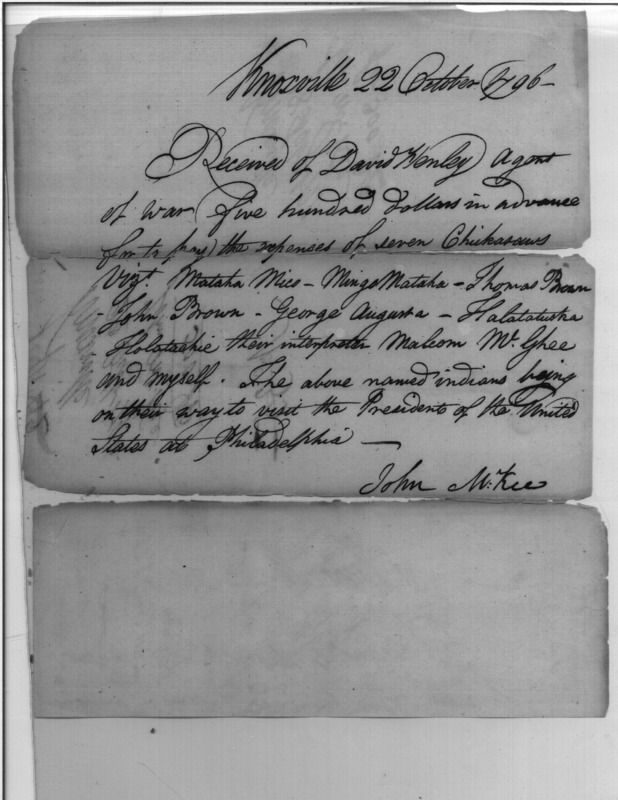 Knoxville 22 October 1796 -
Received of David Henley Agent
of war five hundred dollars in advance
for to pay the expences of seven Chickasaws
Vizt. Mataha Mico - Minga Mataha - Thomas Brown
- John Brown - George Augusta - Halatatuska
- Holatachie their interpreter Malcom Mc. Ghee
and myself. The above named indians being
on their way to visit the President of the United
States at Philadelphia —
John McKee